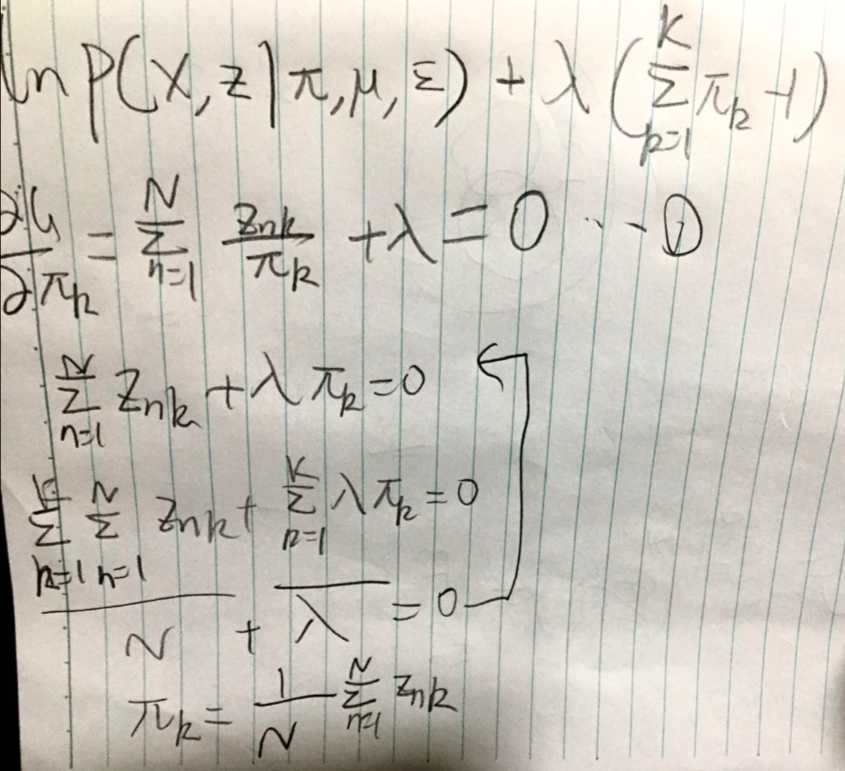 ln p(X, Z | π, μ, Σ) + λ ( Σ_{k=1}^{K} π_k - 1 )
∂G/∂π_k = Σ_{n=1}^{N} z_{nk}/π_k + λ = 0 ... ①
Σ_{n=1}^{N} z_{nk} + λ π_k = 0
Σ_{k=1}^{K} Σ_{n=1}^{N} z_{nk} + Σ_{k=1}^{K} λ π_k = 0
N + λ = 0
π_k = 1/N Σ_{n=1}^{N} z_{nk}